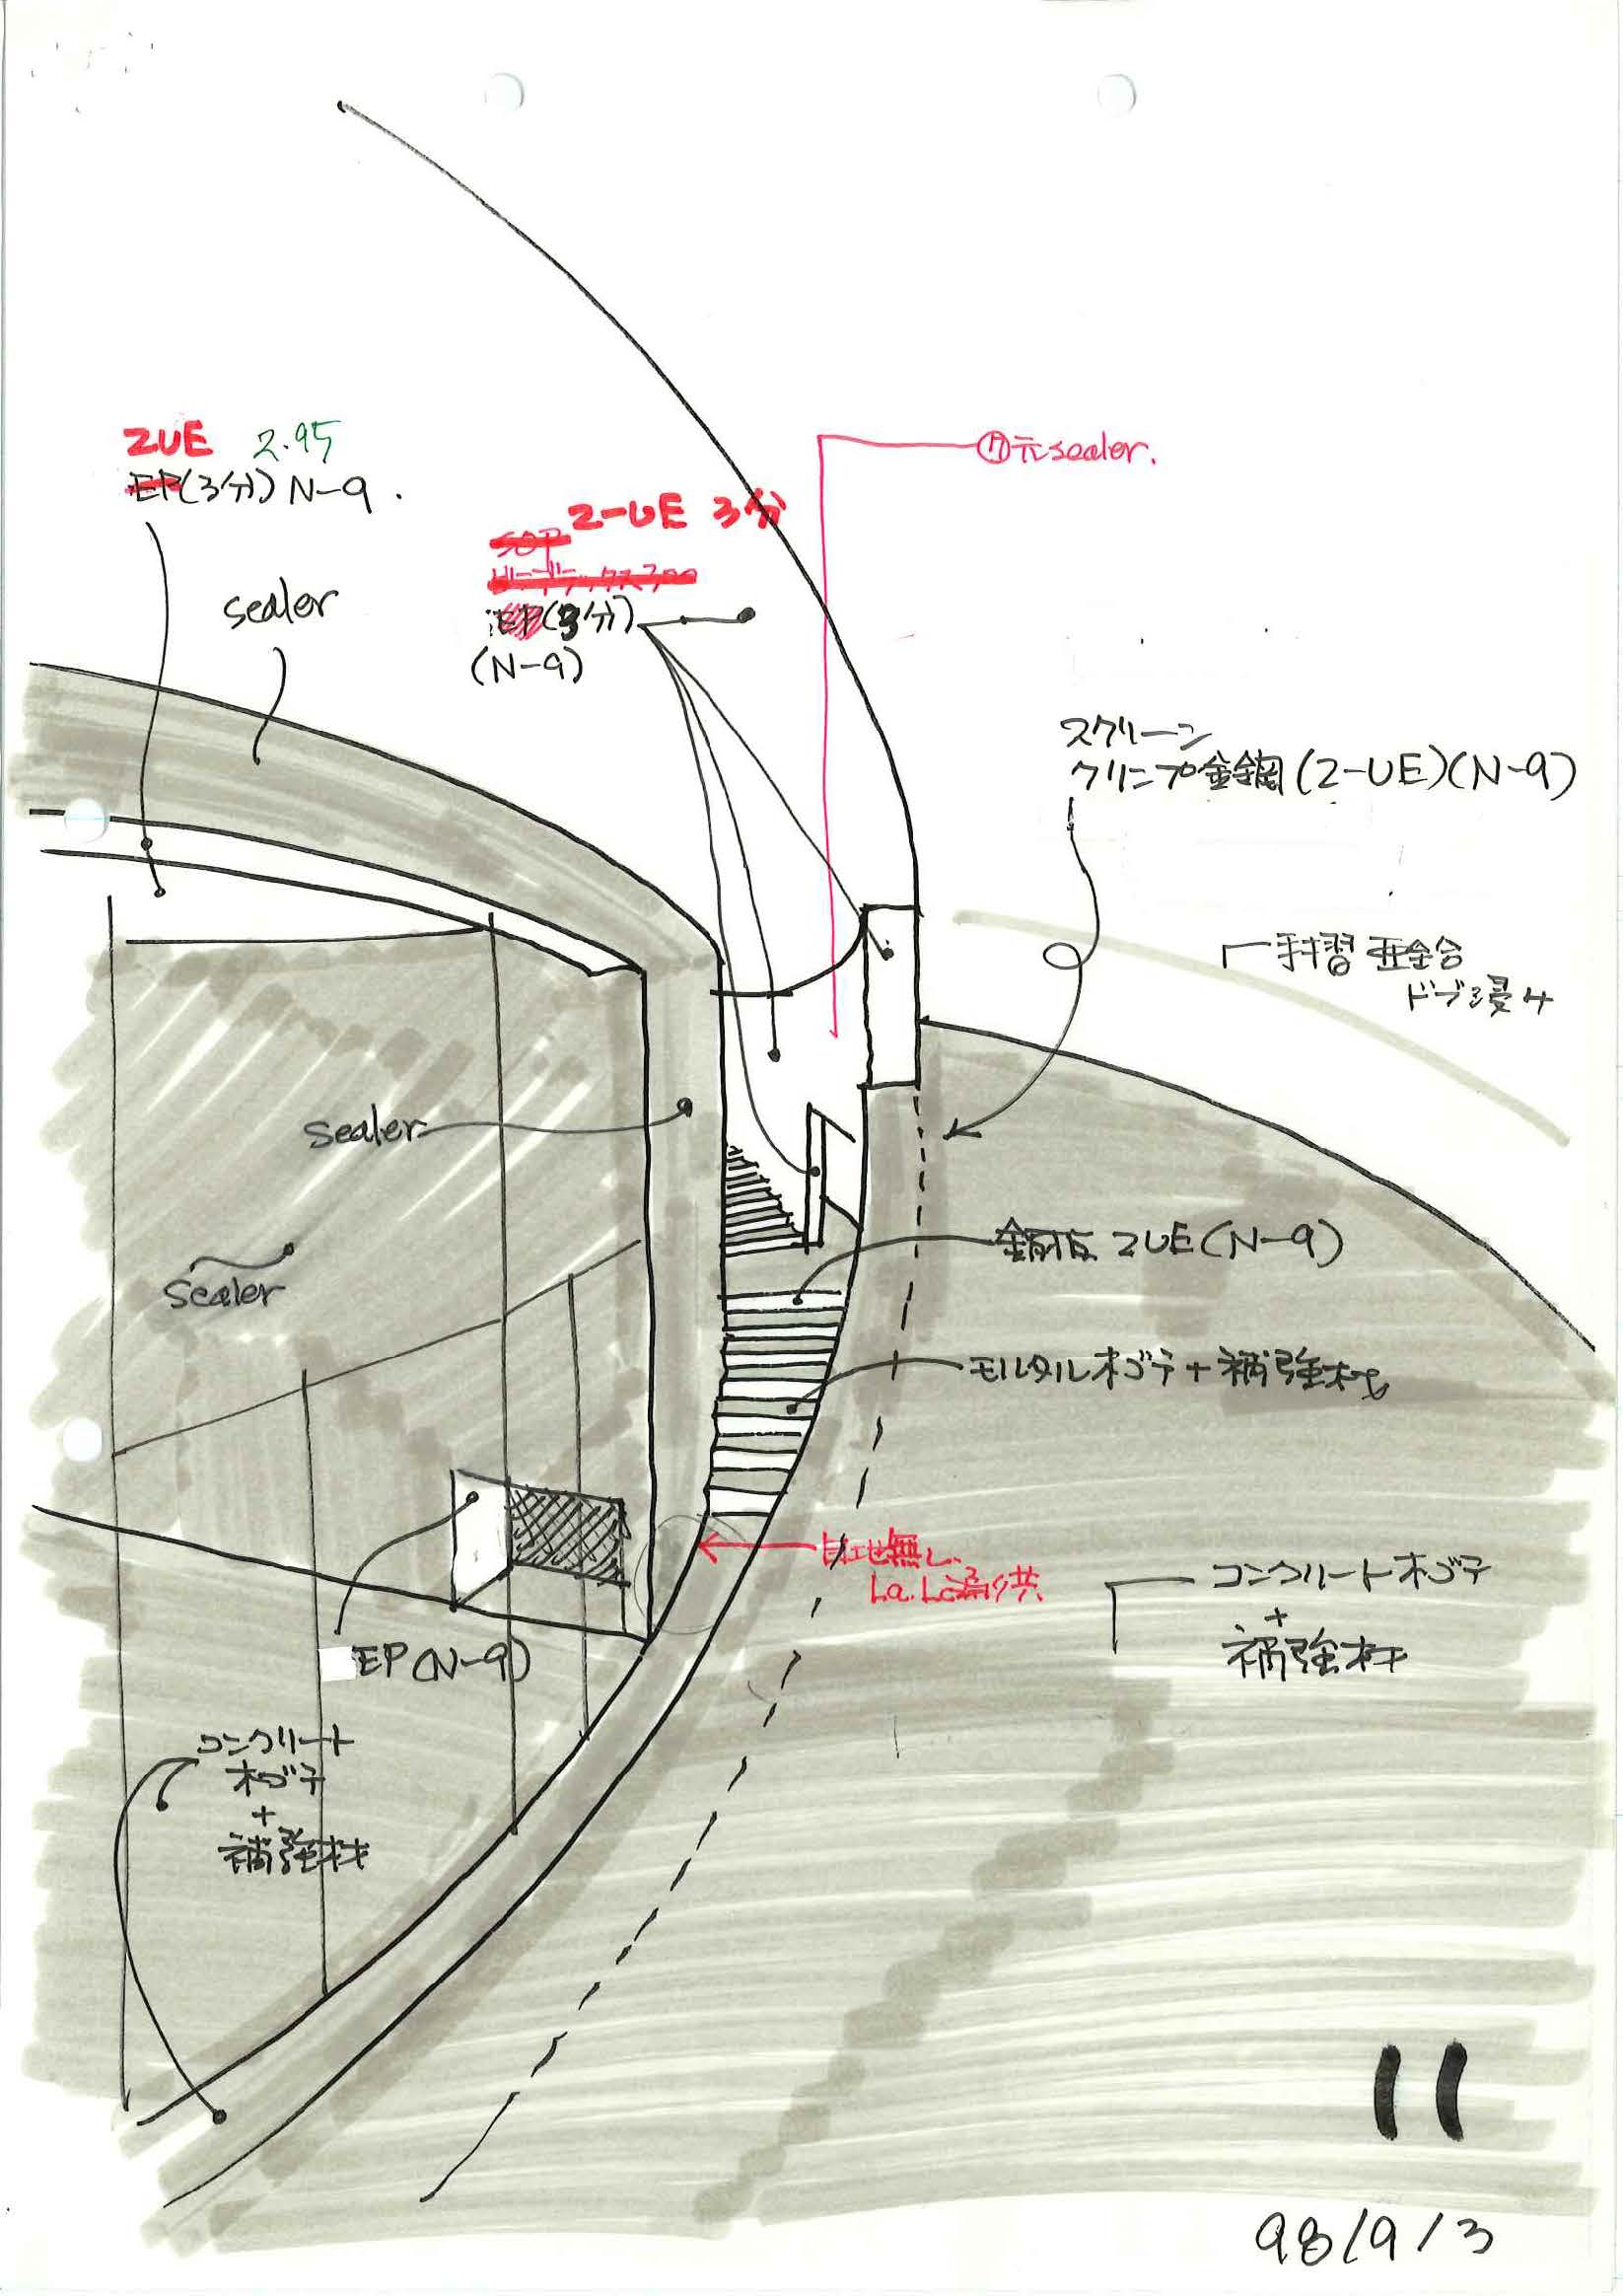 2UE 2.95
EP(3分) N-9.
sealer
2-UE 3分
SOP
EP(3分)
(N-9)
sealer.
スクリーン
クリンプ金網(2-UE)(N-9)
手摺 亜鉛
ドブ浸ケ
sealer
sealer
鋼板 2UE(N-9)
モルタル木ゴテ+補強材
目地無し
La. Lc 通り共
EP(N-9)
コンクリート木ゴテ
+
補強材
コンクリート
木ゴテ
+
補強材
11
98/9/3